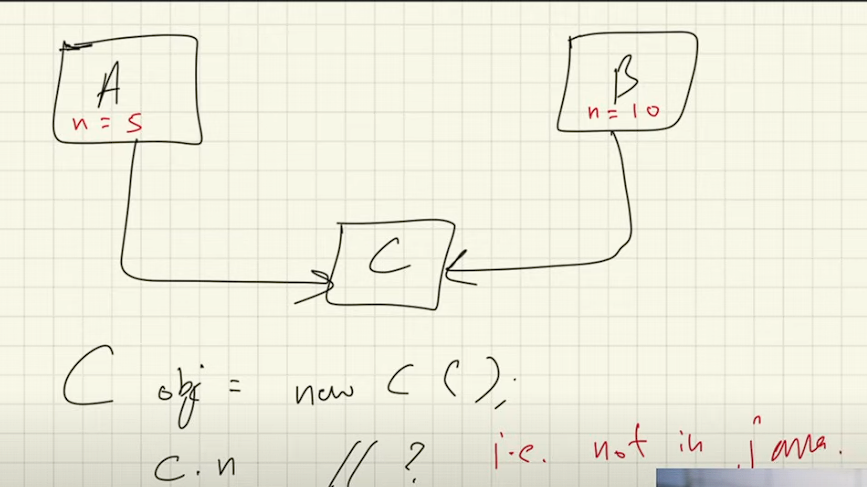 A
n = 5
B
n = 10
C
C obj = new C ();
c.n // ? i.e. not in java.